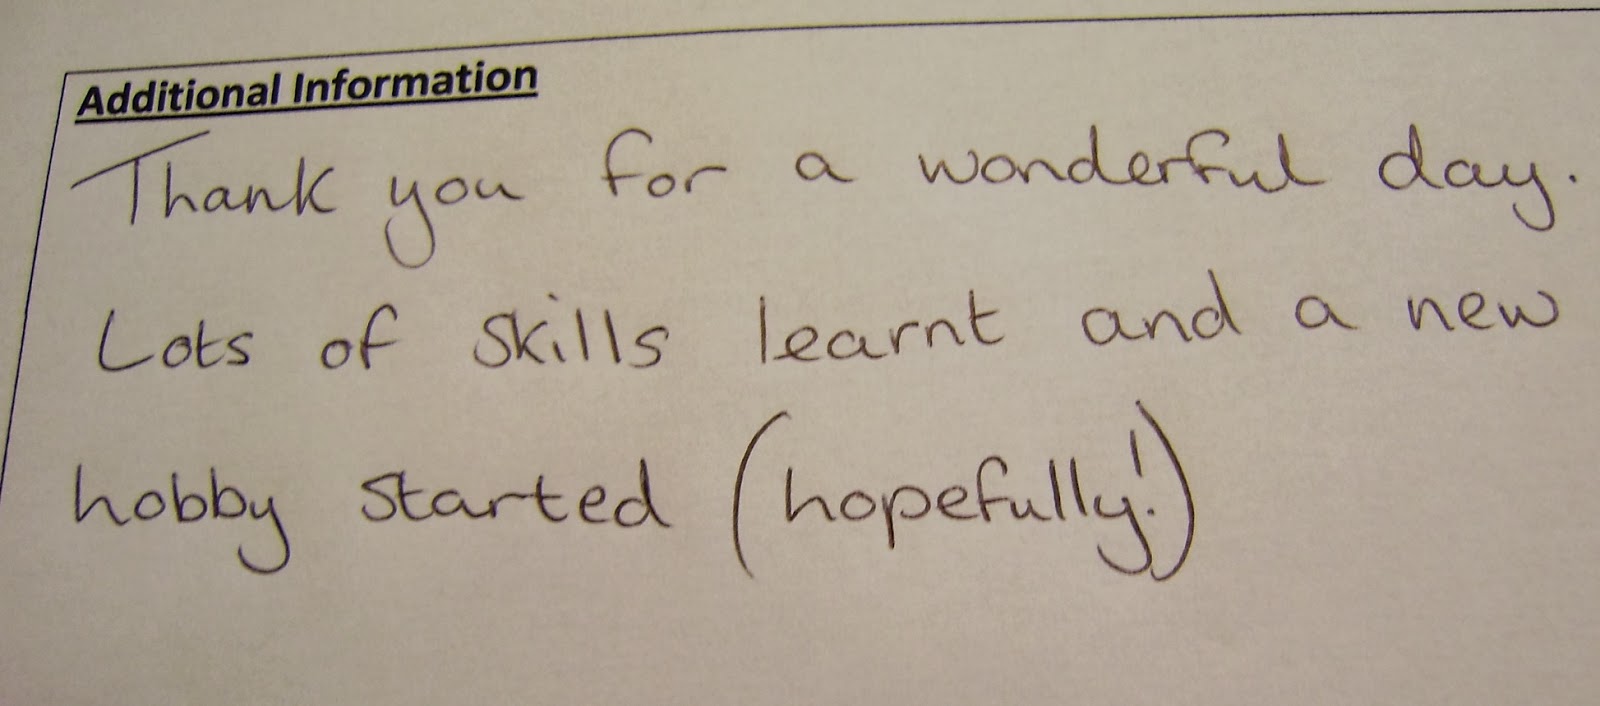 Additional Information
Thank you for a wonderful day.
Lots of skills learnt and a new
hobby started (hopefully!)